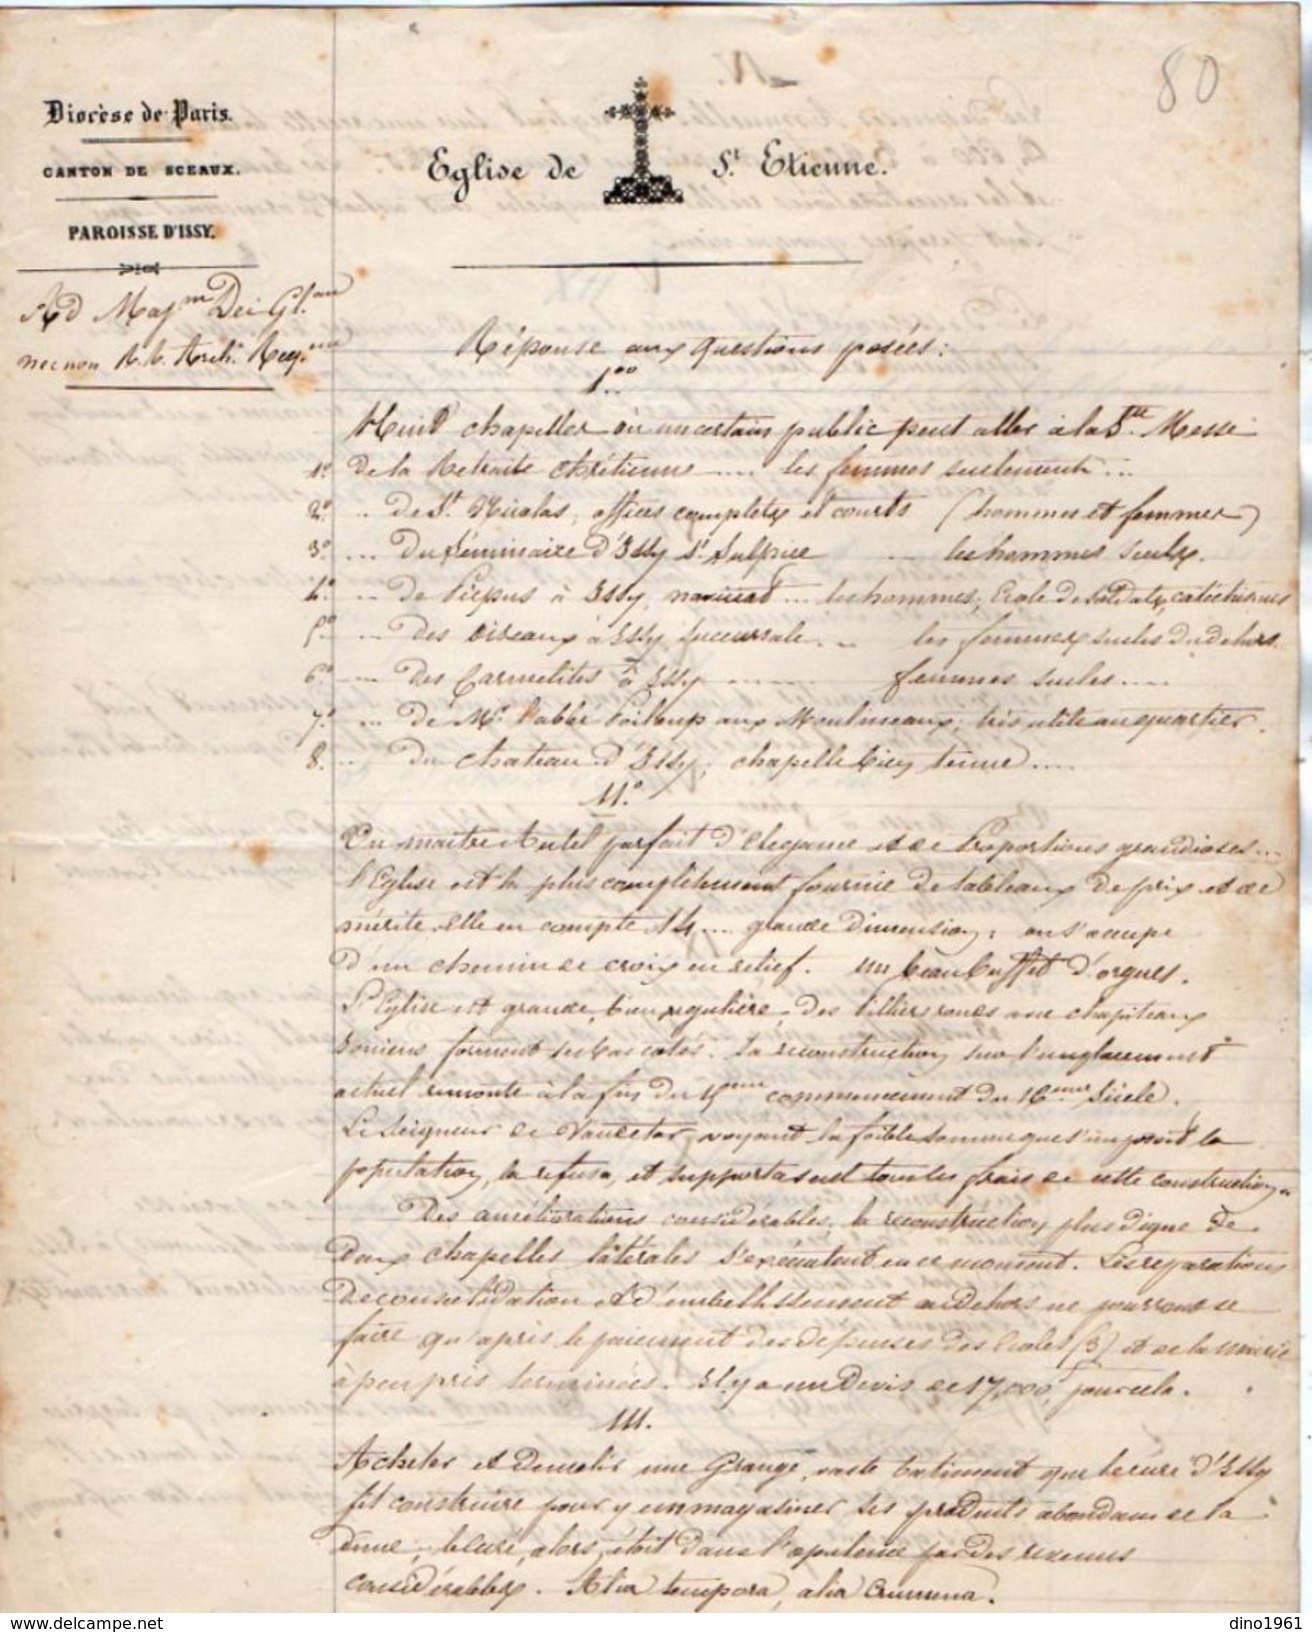 80
Diocèse de Paris.
CANTON DE SCEAUX.
PAROISSE D'ISSY.
Eglise de St. Etienne.
Ad Maj.m Dei Gl.am
necnon
Réponse aux questions posées:
1.
Huit chapelles où un certain public peut aller à la Ste. Messe
1º. De la Retraite chrétienne .... les femmes seulement...
2º. .. de St. Nicolas, offices complets et courts (hommes et femmes)
3º ... Du Séminaire d'Issy St. Sulpice .. les hommes seuls.
4º .. de Picpus à Issy, noviciat ... les hommes, Ecole de Soldats, catéchismes
5º .. Des Oiseaux à Issy, succursale .. les femmes seules du dehors.
6º .... des Carmelites à Issy ...... femmes seules ....
7º .. de Mr. l'abbé Poiloup aux Moulineaux, très utile au quartier.
8. .. Du chateau d'Issy, chapelle bien tenue ....
11.º
Un maitre Autel parfait d'élegance et de Proportions grandioses...
l'Eglise est la plus complètement fournie de tableaux de prix et de
mérite, elle en compte 14 .... grande dimension; on s'occupe
d'un chemin de croix en relief. un beau buffet d'orgues.
l'Eglise est grande, bien régulière, des Pilliers ronds avec chapiteaux
Ioniens forment ses bas cotés. la reconstruction sur l'emplacement
actuel remonte à la fin du 15eme commencement du 16eme Siècle.
Le Seigneur de Vaudetar, voyant la faible somme que s'imposait la
population, la refusa, et supporta seul tous les frais de cette construction.
Des améliorations considérables, la reconstruction plus digne de
deux chapelles latérales s'exécutent en ce moment. Les réparations
de consolidation et d'embellissement au dehors ne pourront se
faire qu'après le paiement des dépenses des Ecoles (3) et de la mairie
à peu près terminées. Il y a un Devis de 17,000, pour cela.
111.
Acheter et démolir une Grange, vaste batiment que le curé d'Issy
fit construire pour y emmagasiner les produits abondans de la
dime, le curé, alors, étoit dans l'opulence par des revenus
considérables. Alia tempora, alia crumena.
dino1961